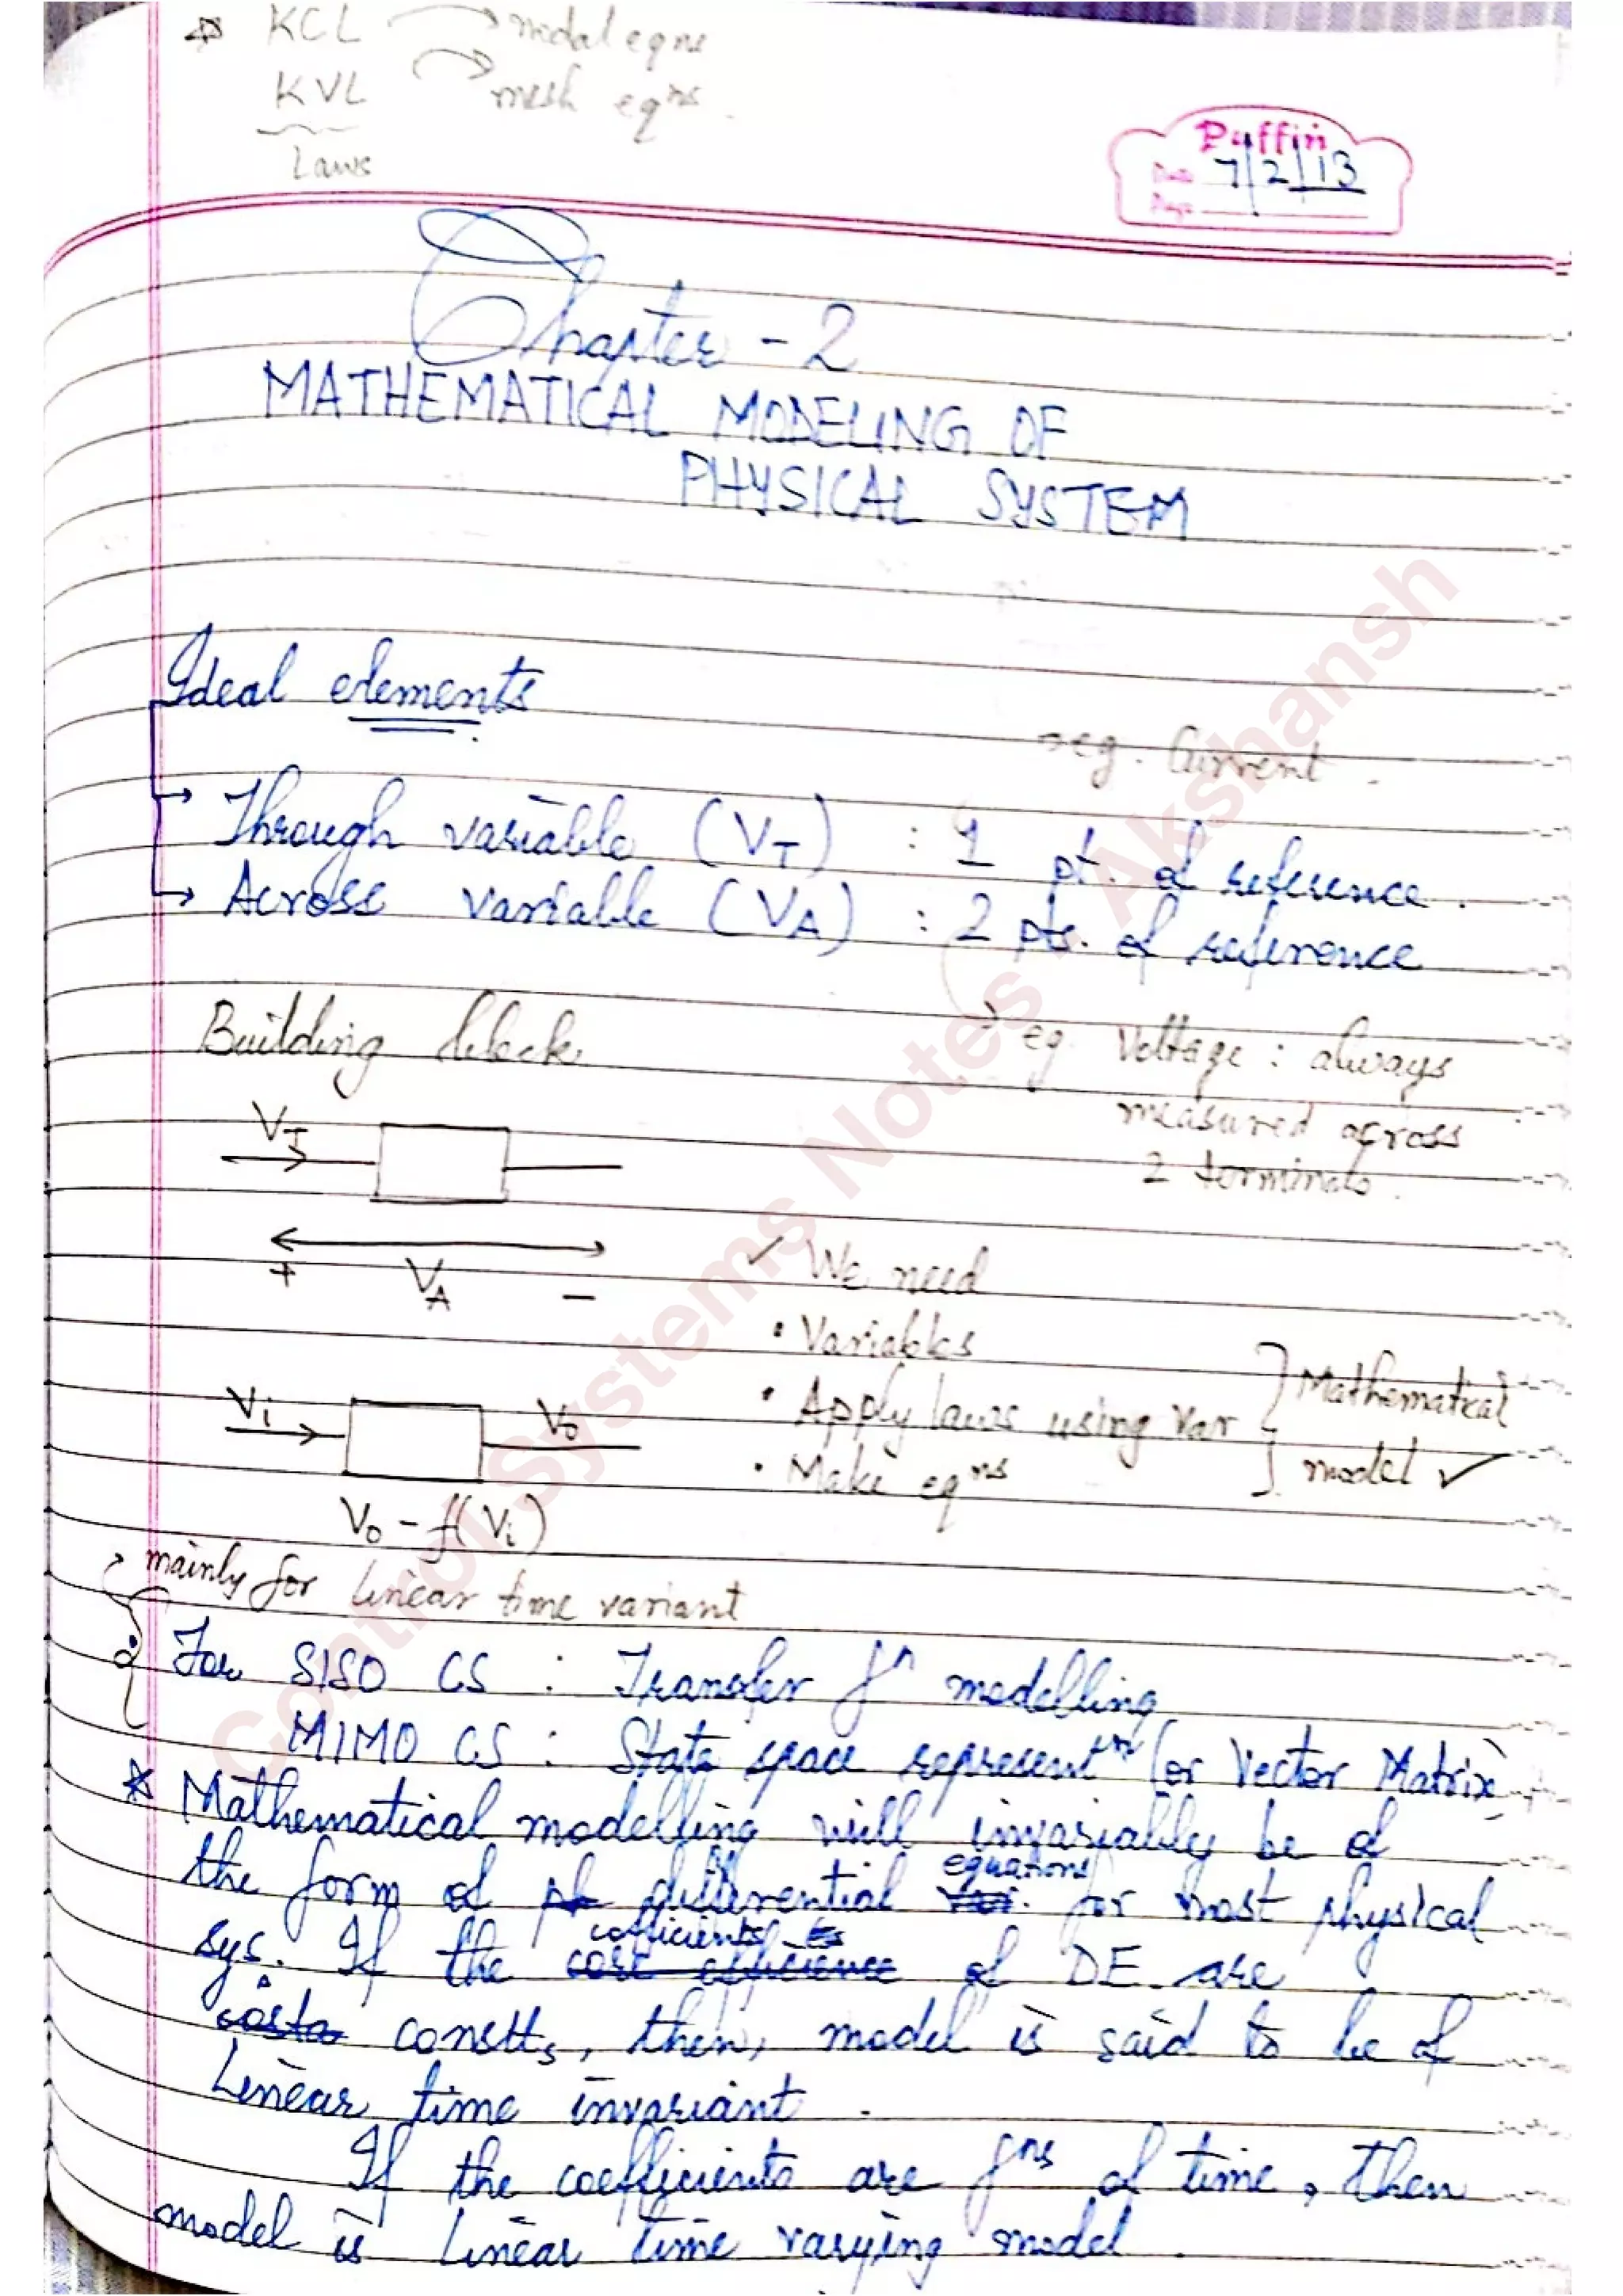 KCL → nodal eqns
KVL → mesh eqns.
Laws
Puffin
Date 7/2/13
Page
Chapter - 2
MATHEMATICAL MODELING OF
PHYSICAL SYSTEM
Ideal elements
→ eg. Current.
→ Through variable (VT) : 1 pt. of reference.
→ Across variable (VA) : 2 pts. of reference
Building block
→ eg. Voltage : always
measured across
2 terminals.
VT
+ VA -
✓ We need
• Variables
• Apply laws using var
• Make eqns
} Mathematical
model ✓
Vi Vo
Vo - f(Vi)
→ mainly for linear time variant
For SISO CS : Transfer fn modelling
MIMO CS : State space representn (or Vector Matrix
* Mathematical modelling will invariably be of
the form of differential equations for most physical
sys. If the coefficients of DE are
constts, then, model is said to be of
Linear time invariant.
If the coefficients are fns of time, then
model is Linear time varying model.
Control Systems Notes Akshansh